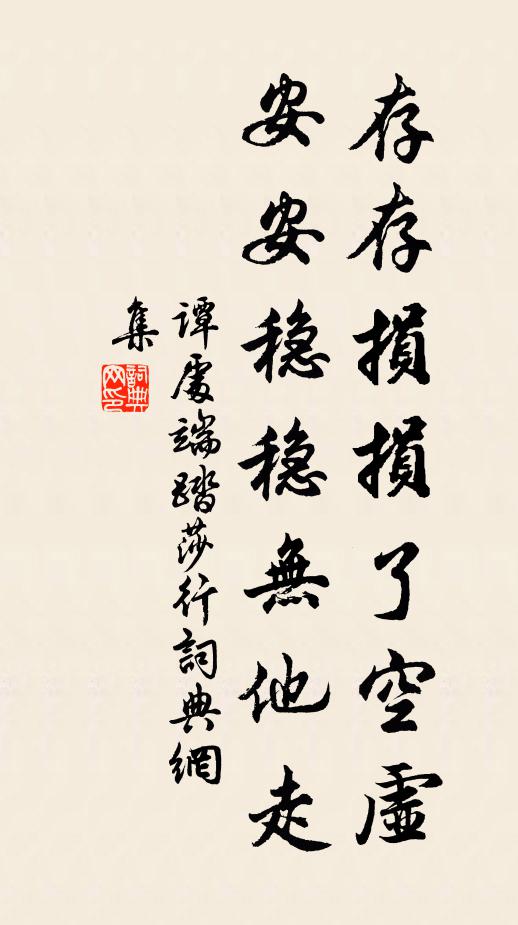 存存損損了空虛
安安穏穏無他走
譚處端踏莎行詞典網
集
詞典网印